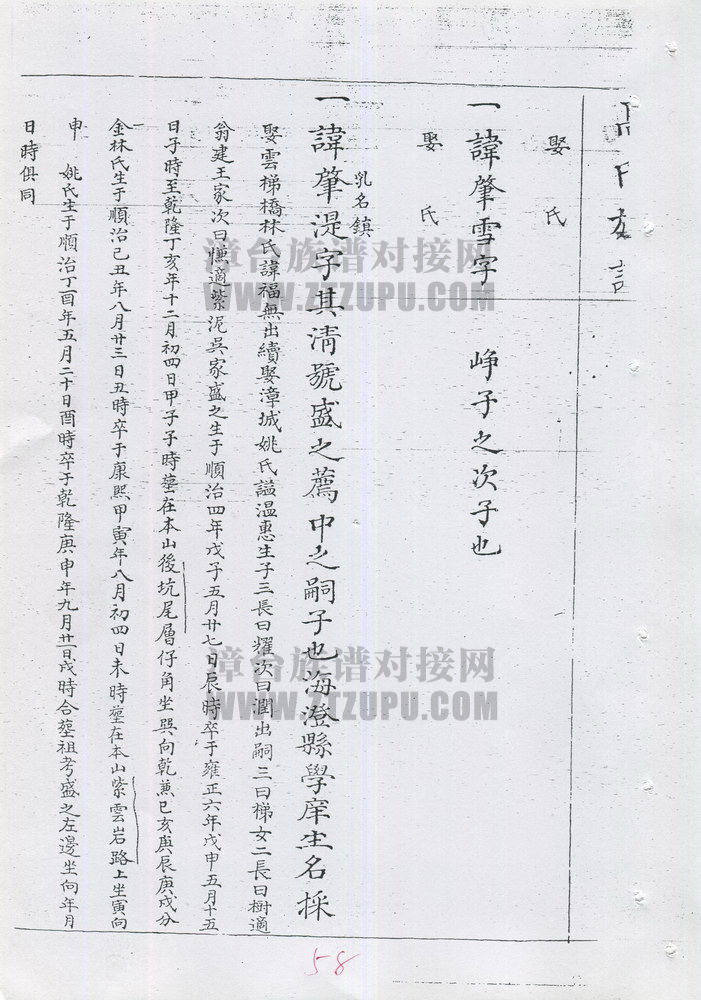 娶氏
一諱肇雪字 崢子之次子也
娶氏
乳名鎮
一諱肇湜字其清號盛之薦中之嗣子也海澄縣學庠生名採
娶雲梯橋林氏諱福無出續娶漳城姚氏謚温惠生子三長曰耀次曰潤出嗣三曰梯女二長曰樹適
翁建王家次曰慊適紫泥吳家盛之生于順治四年戊子五月廿七日辰時卒于雍正六年戊申五月十五
日子時至乾隆丁亥年十二月初四日甲子子時塟在本山後坑尾層仔角坐巽向乾兼巳亥庚辰庚戌分
金林氏生于順治己丑年八月廿三日丑時卒于康熙甲寅年八月初四日未時塟在本山紫雲岩路上坐寅向
申 姚氏生于順治丁酉年五月二十日酉時卒于乾隆庚申年九月廿一日戌時合塟祖考盛之左邊坐向年月
日時俱同
58
漳台族谱对接网
WWW.ZTZUPU.COM
漳台族谱对接网
WWW.ZTZUPU.COM